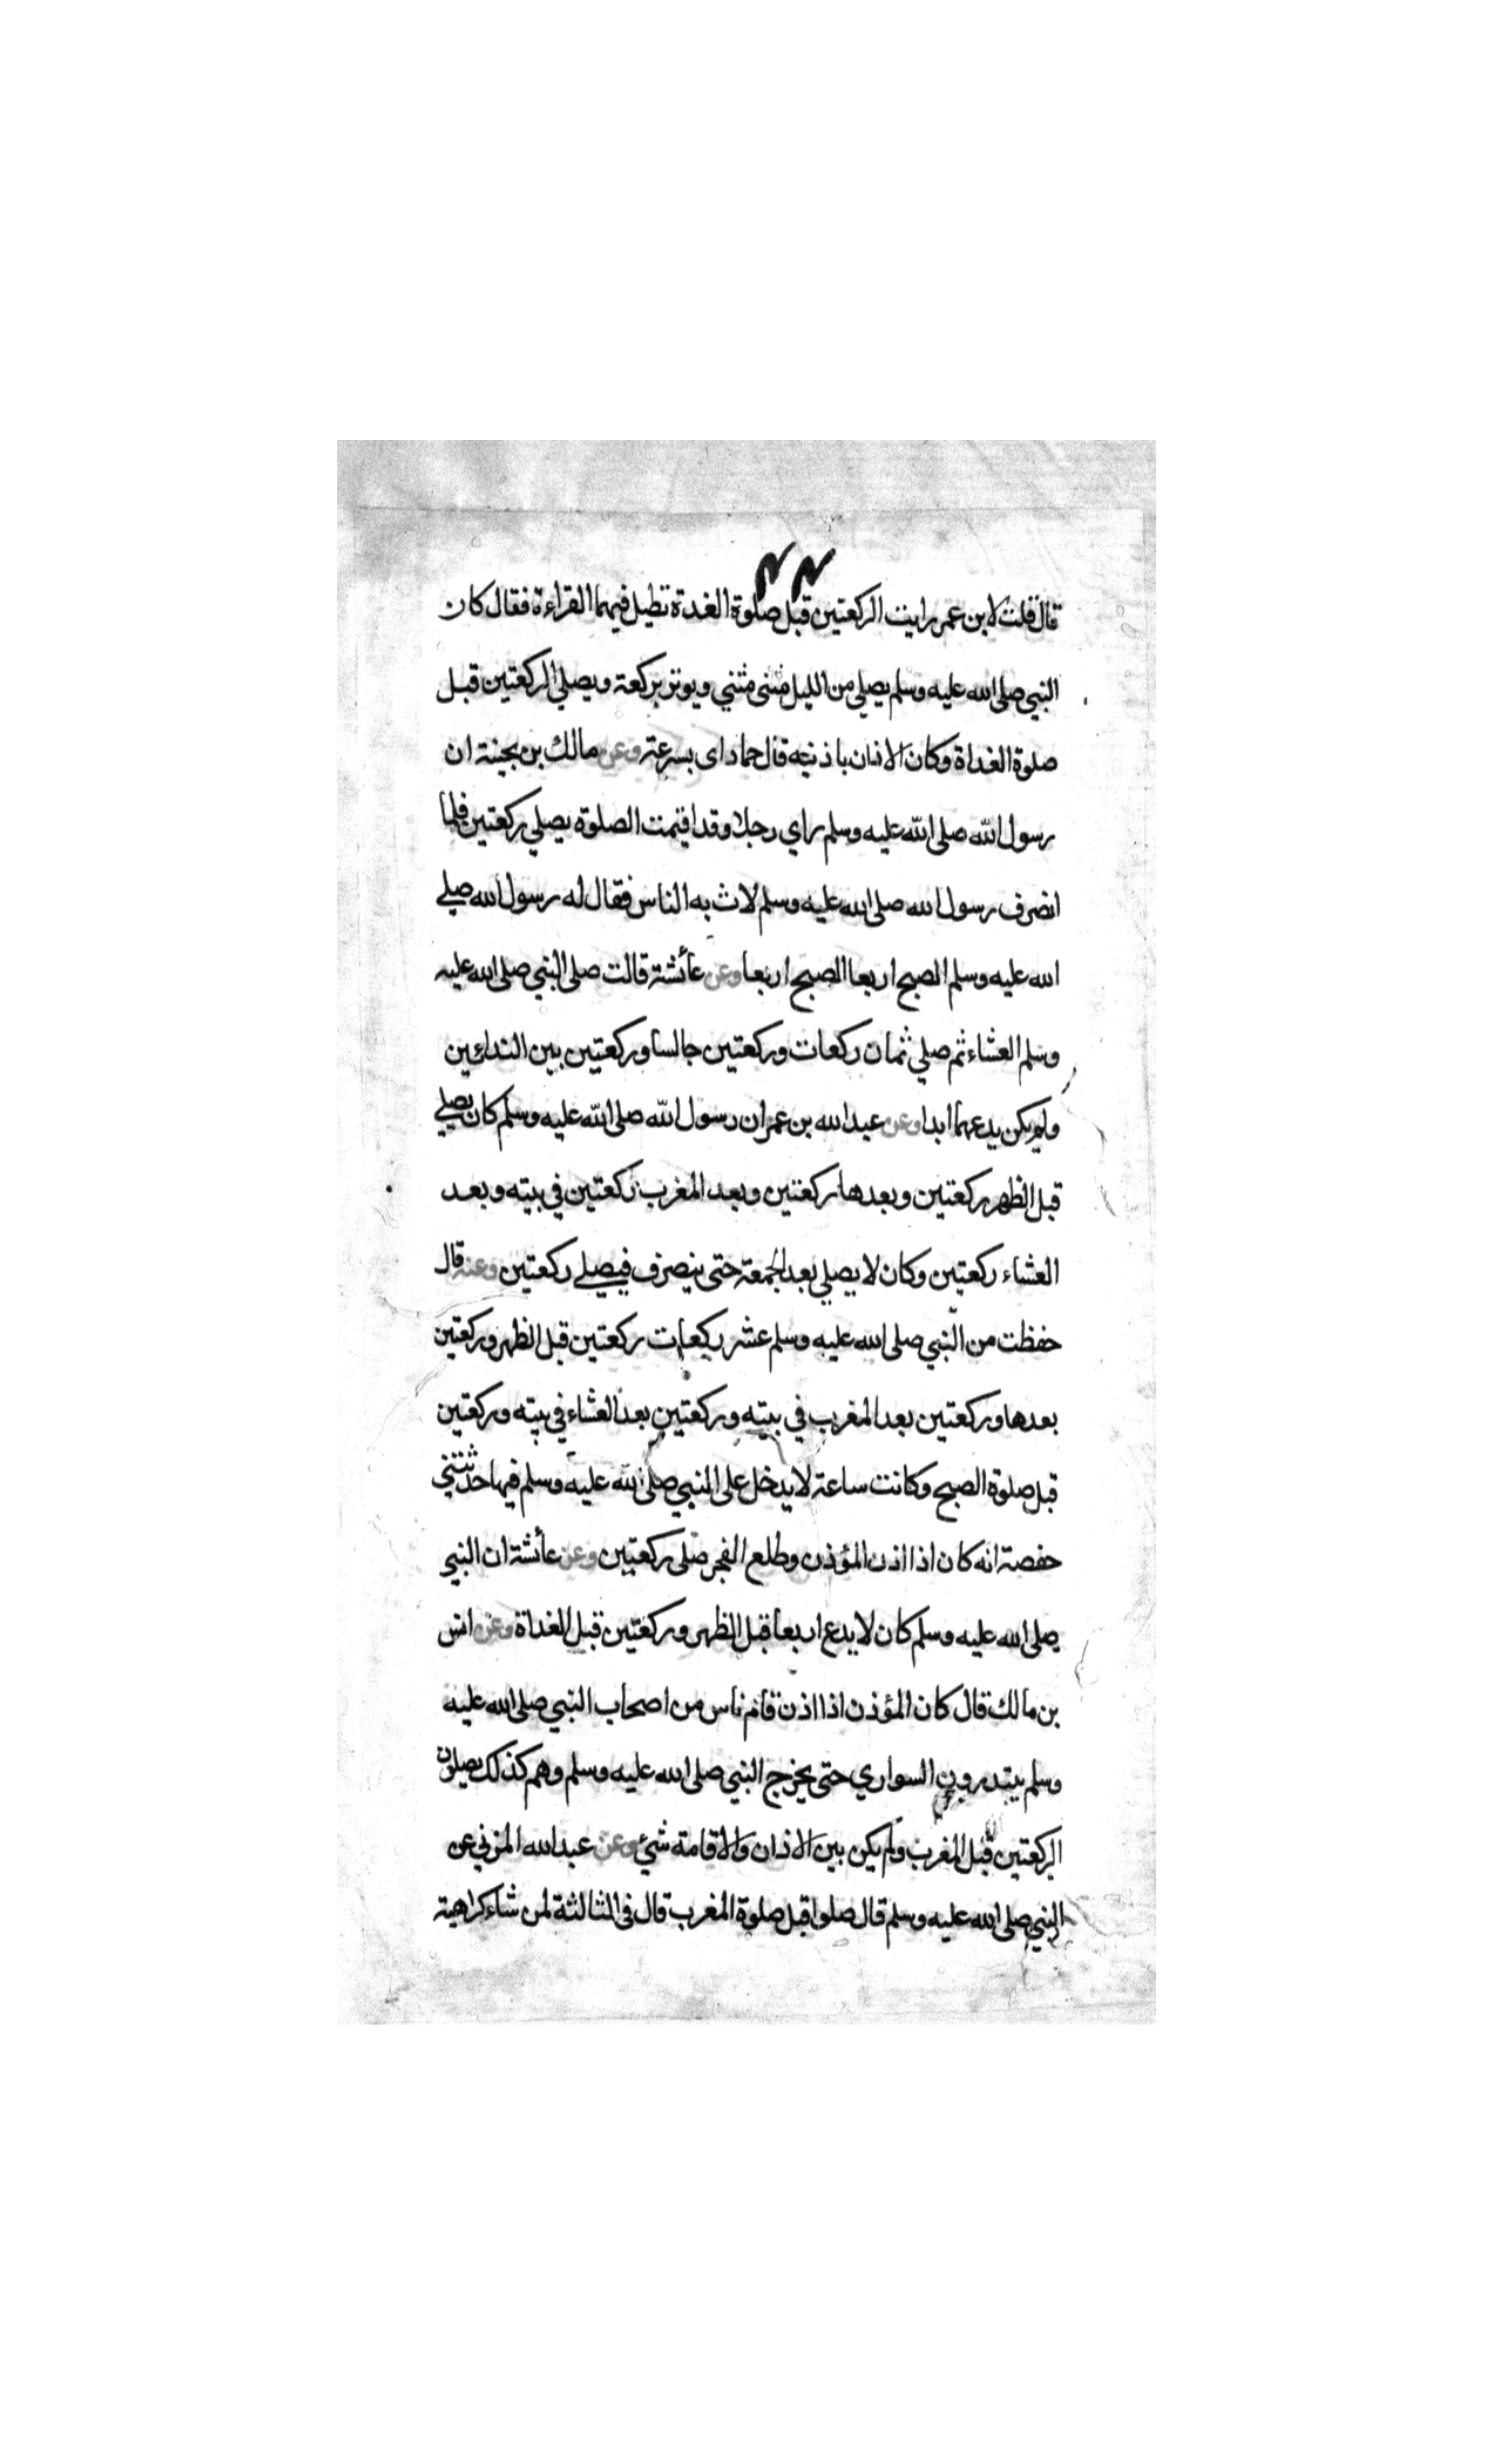 قال قلت لابن عمر رايت الركعتين قبل صلوة الغدة تطيل فيهما القراءة فقال كان
النبي صلى الله عليه وسلم يصلي من الليل مثنى مثني ويوتر بركعة ويصلي الركعتين قبل
صلوة الغداة وكان الاذان باذنيه قال حماد اى بسرعة وعن مالك بن بحينة ان
رسول الله صلى الله عليه وسلم راي رجلا وقد اقيمت الصلوة يصلي ركعتين فلما
انصرف رسول الله صلى الله عليه وسلم لاث به الناس فقال له رسول الله صلي
الله عليه وسلم الصبح اربعا الصبح اربعا وعن عائشة قالت صلى النبي صلى الله عليه
وسلم العشاء ثم صلي ثمان ركعات وركعتين جالسا وركعتين بين الندائين
ولم يكن يدعهما ابدا وعن عبد الله بن عمر ان رسول الله صلى الله عليه وسلم كان يصلي
قبل الظهر ركعتين وبعدها ركعتين وبعد المغرب ركعتين في بيته وبعد
العشاء ركعتين وكان لا يصلي بعد الجمعة حتى ينصرف فيصلي ركعتين وعنه قال
حفظت من النبي صلى الله عليه وسلم عشر ركعات ركعتين قبل الظهر وركعتين
بعدها وركعتين بعد المغرب في بيته وركعتين بعد العشاء في بيته وركعتين
قبل صلوة الصبح وكانت ساعة لا يدخل على النبي صلى الله عليه وسلم فيها حدثتني
حفصة انه كان اذا اذن المؤذن وطلع الفجر صلى ركعتين وعن عائشة ان النبي
صلى الله عليه وسلم كان لا يدع اربعا قبل الظهر وركعتين قبل الغداة وعن انس
بن مالك قال كان المؤذن اذا اذن قام ناس من اصحاب النبي صلى الله عليه
وسلم يبتدرون السواري حتى يخرج النبي صلى الله عليه وسلم وهم كذلك يصلون
الركعتين قبل المغرب ولم يكن بين الاذان والاقامة شئ وعن عبد الله المزني عن
النبي صلى الله عليه وسلم قال صلوا قبل صلوة المغرب قال في الثالثة لمن شاء كراهية